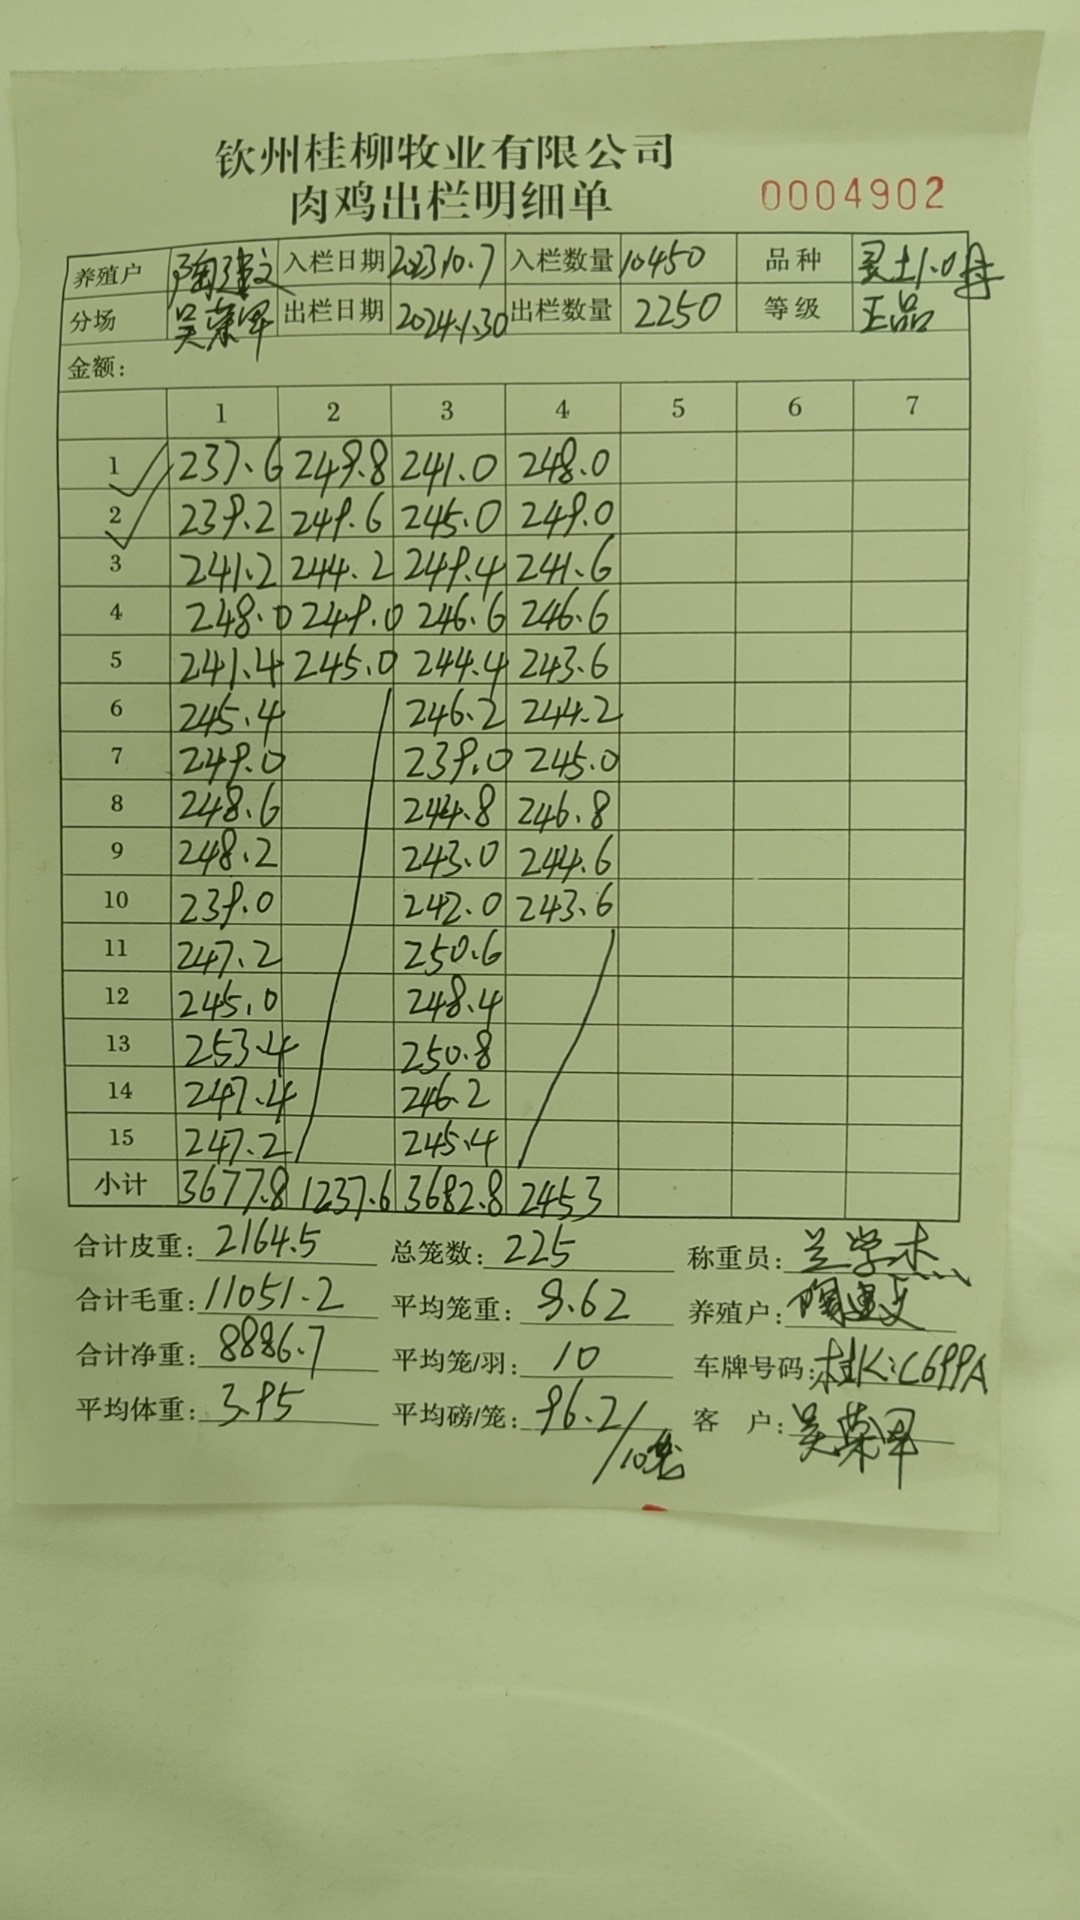 钦州桂柳牧业有限公司
肉鸡出栏明细单 0004902
养殖户 陶建文 入栏日期 2023.10.7 入栏数量 10450 品种 灵土1.0母
分场 吴荣军 出栏日期 2024.1.30 出栏数量 2250 等级 正品
金额:
1 2 3 4 5 6 7
1 237.6 249.8 241.0 248.0
2 239.2 249.6 245.0 249.0
3 241.2 244.2 249.4 241.6
4 248.0 249.0 246.6 246.6
5 241.4 245.0 244.4 243.6
6 245.4 246.2 244.2
7 249.0 239.0 245.0
8 248.6 244.8 246.8
9 248.2 243.0 244.6
10 239.0 242.0 243.6
11 247.2 250.6
12 245.0 248.4
13 253.4 250.8
14 247.4 246.2
15 247.2 245.4
小计 3677.8 1237.6 3682.8 2453
合计皮重: 2164.5 总笼数: 225 称重员: 兰学杰
合计毛重: 11051.2 平均笼重: 9.62 养殖户: 陶建文
合计净重: 8886.7 平均笼/羽: 10 车牌号码: 桂K:C699A
平均体重: 3.95 平均磅/笼: 96.2/10笼 客 户: 吴荣军